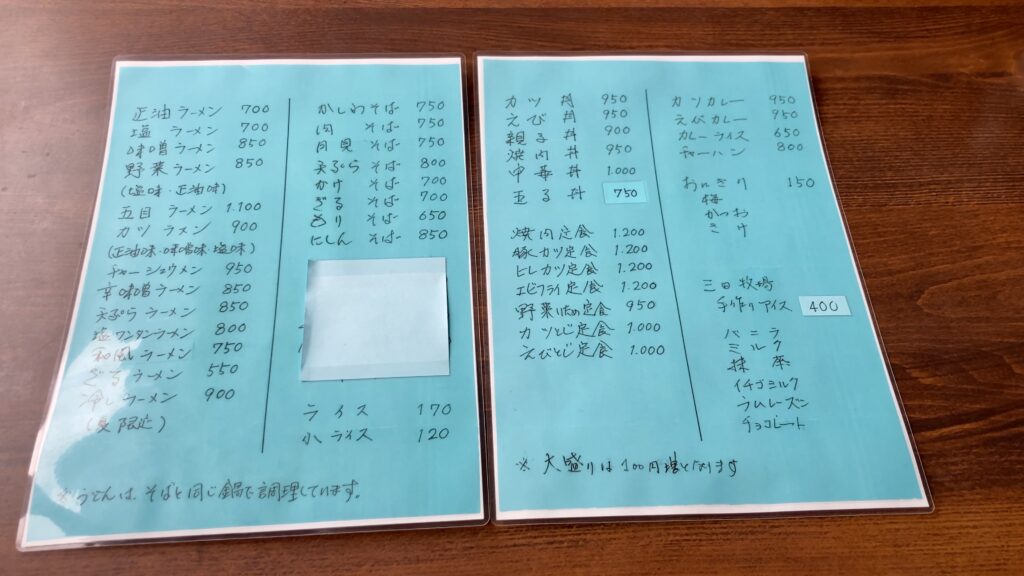 正油ラーメン 700
塩 ラーメン 700
味噌ラーメン 850
野菜ラーメン 850
(塩味・正油味)
五目 ラーメン 1.100
カツ ラーメン 900
(正油味・味噌味・塩味)
チャーシュウメン 950
辛味噌ラーメン 850
天ぷら ラーメン 850
塩ワンタンラーメン 800
和風 ラーメン 750
ざる ラーメン 550
冷しラーメン 900
(夏限定)
かしわ そば 750
肉 そば 750
月見 そば 750
天ぷら そば 800
かけ そば 700
ざる そば 700
もり そば 650
にしん そば 850
ライス 170
小ライス 120
※うどんは、そばと同じ鍋で調理しています。
カツ 丼 950
えび 丼 950
親子 丼 900
焼肉 丼 950
中華 丼 1.000
玉子 丼 750
焼肉定食 1.200
豚カツ定食 1.200
ヒレカツ定食 1.200
エビフライ定食 1.200
野菜いため定食 950
カツとじ定食 1.000
えびとじ定食 1.000
カツカレー 950
えびカレー 950
カレーライス 650
チャーハン 800
おにぎり 150
梅
かつお
さけ
三田牧場
手作りアイス 400
バニラ
ミルク
抹茶
イチゴミルク
ラムレーズン
チョコレート
※ 大盛りは100円増となります